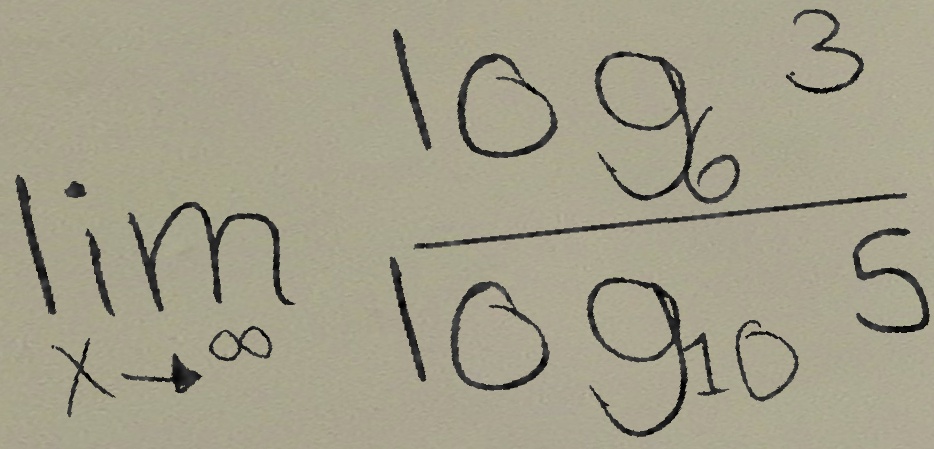 lim x→∞ log₆³ / log₁₀⁵